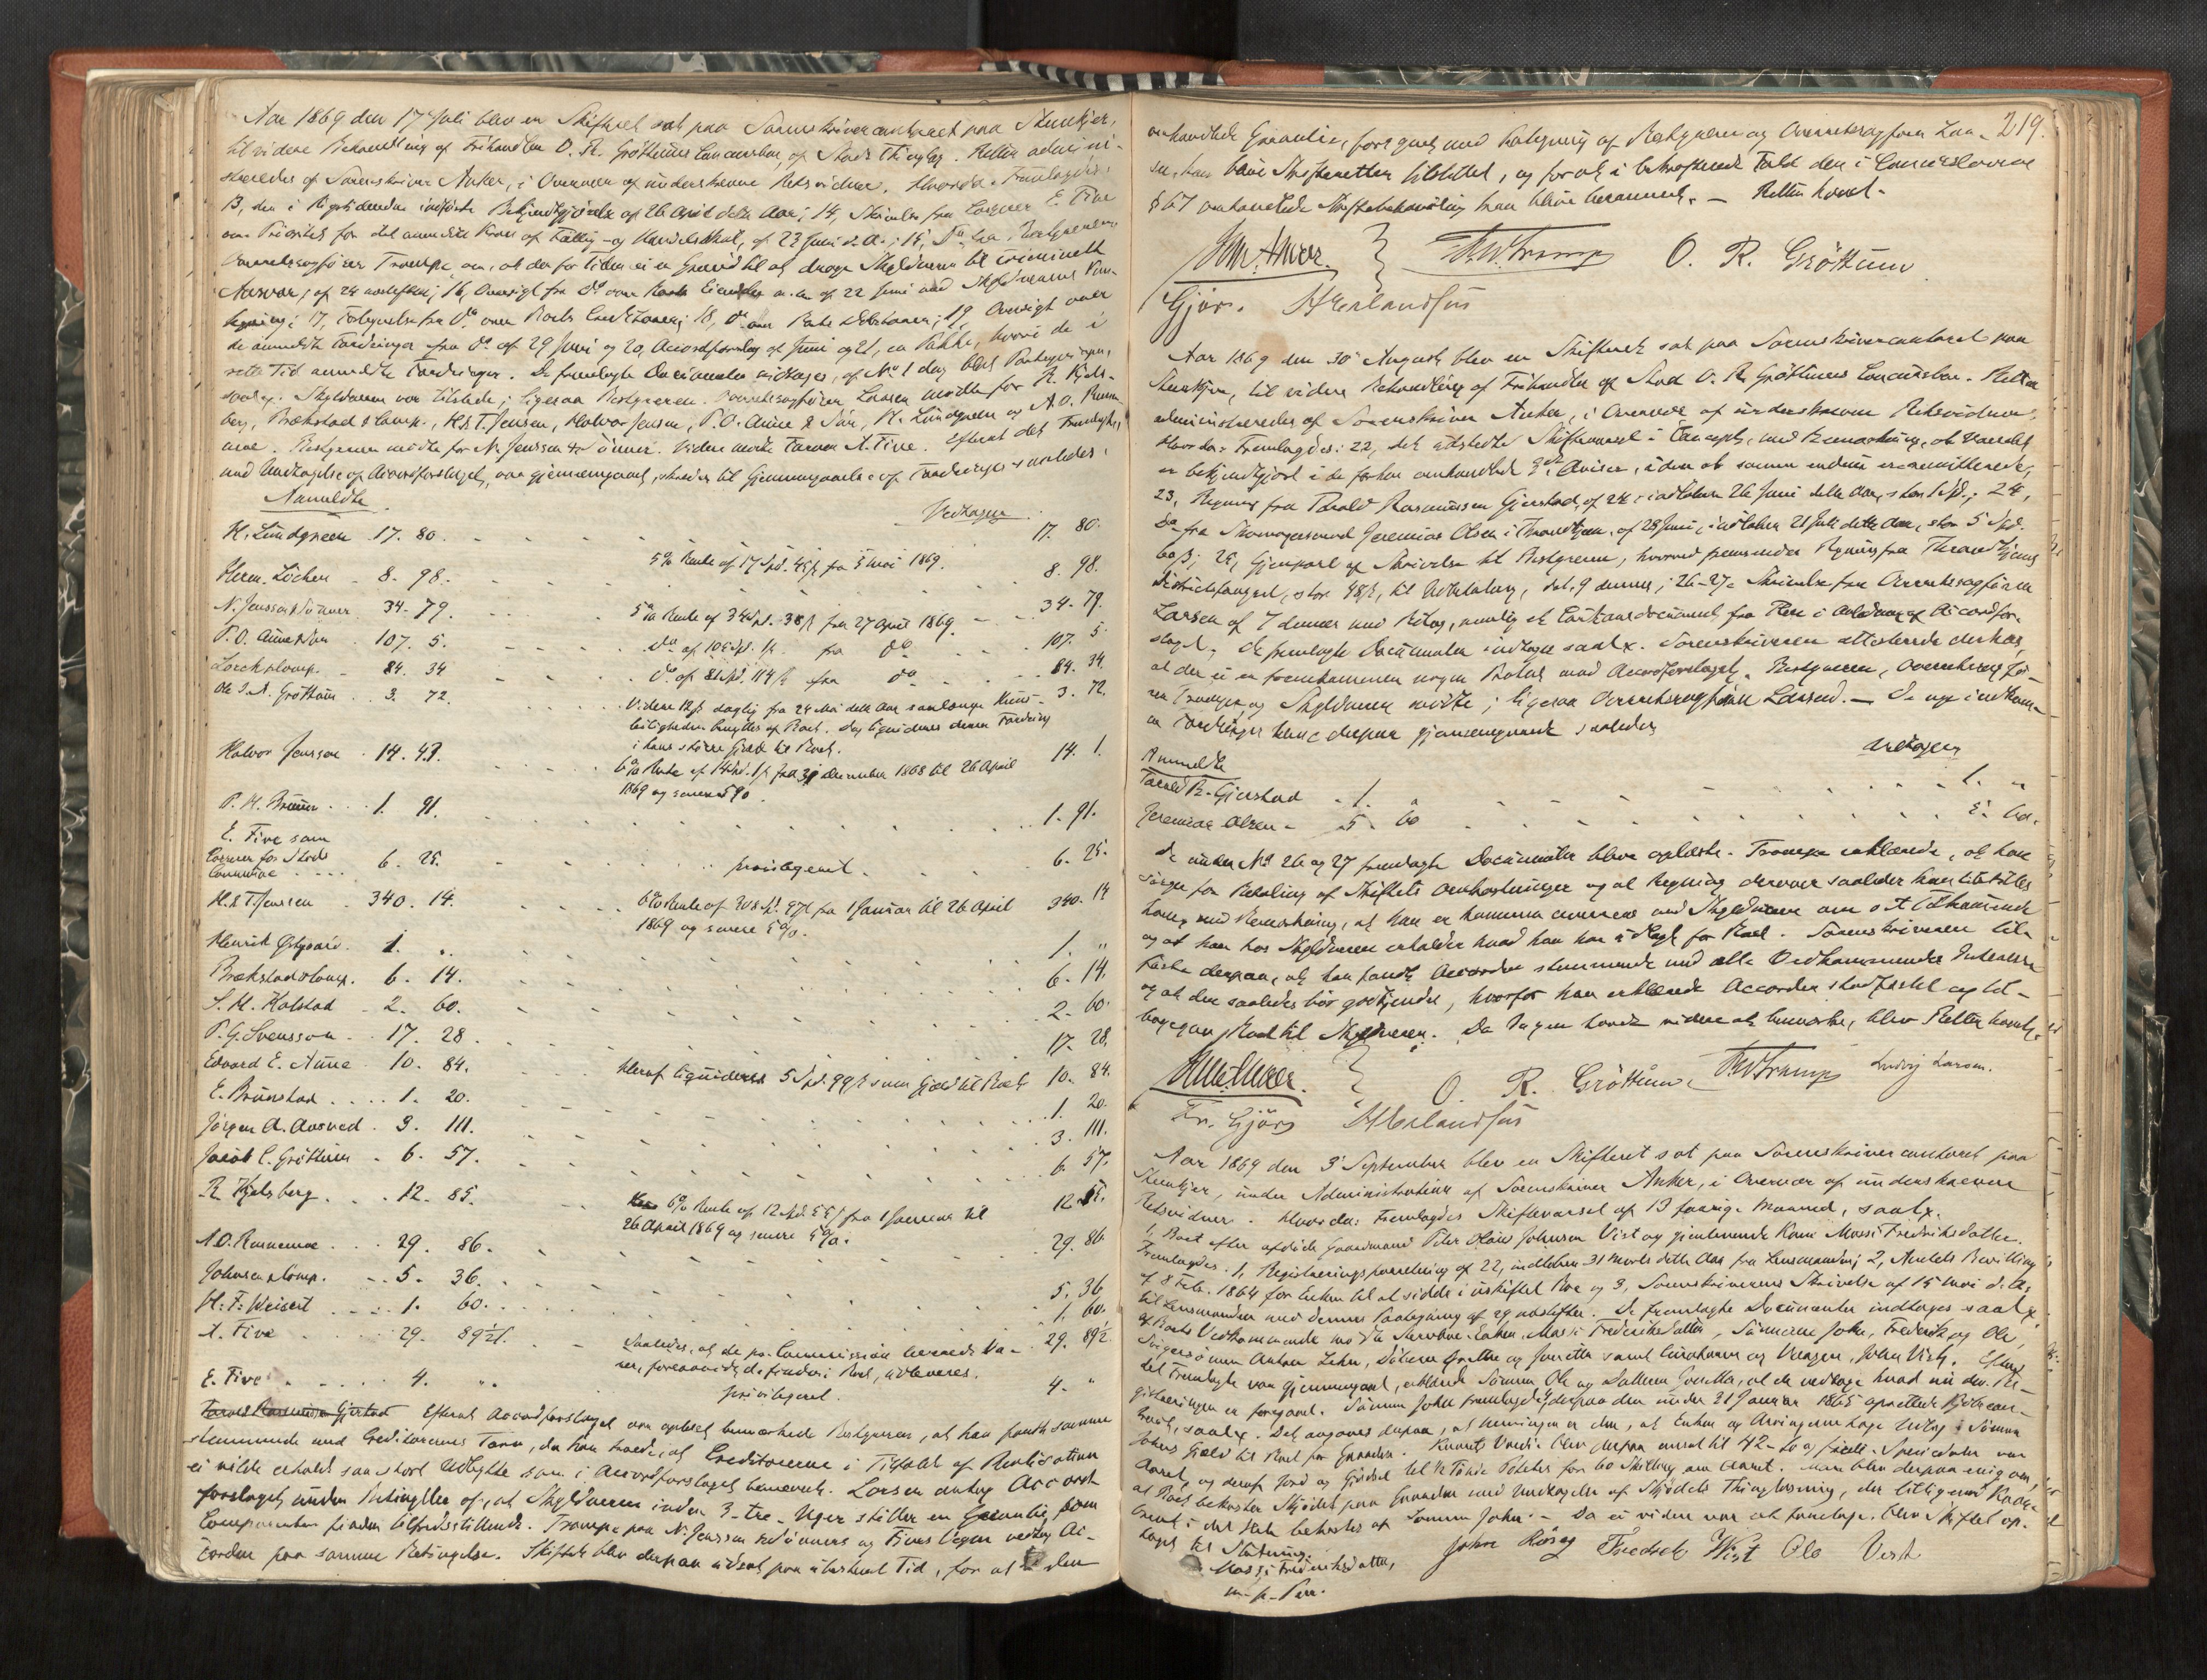 Aar 1869 den 17 Juli blev en Skifteret sat paa Sorenskrivercontoret paa Stenkjer,
til videre Behandling af Frihandler O. R. Grøttums Concursbo, af Stods Thinglag. Retten admini-
streredes af Sorenskriver Anker, i Overvær af underskrevne Retsvidner. Hvorda: Fremlagdes:
13, den i Rigstidende indførte Bekjendtgjørelse af 26 April dette Aar; 14, Skrivelse fra Casserer E. Five
om Prioritet for det anmeldte Krav af Fattig- og Handelsskat, af 23 Juni d. A.; 15, Do fra Bestyreren
Overretssagfører Trampe om, at der for Tiden ei er Grund til at drage Skyldneren til criminelt
Ansvar, af 24 ; 16, Oversigt fra Do over Boets Eiendele m. m. af 22 Juni med Skyldnerens
; 17, Fortegnelse fra Do over Boets Creditorer; 18, Do over Boets Debitorer; 19, Oversigt over
de anmeldte Fordringer fra Do af 29 Juni og 20, Accordforslag af Juni og 21, en Pakke, hvori de i
rette Tid anmeldte Fordringer. De fremlagte Documenter indtages, af No 1 dog blot Paategningen,
saal. Skyldneren var tilstede; ligesaa Bestyreren. Overretssagfører Larsen mødte for R. Kjels-
berg, Brækstad & Comp., H. & T. Jensen, Halvor Jensen, P. O. Aune & Søn, H. Lundgreen og A. O.
. Bestyreren mødte for N. Jenssen & Sønner. Videre mødte Farver A. Five. Efterat det Fremlagte,
med Undtagelse af Accordforslaget, var gjennemgaaet, skredes til Gjennemgaaelse af Fordringerne saaledes:
Anmeldte Vedtagen
H. Lundgreen 17. 80. 17. 80.
Herm. Löchen 8. 98. 5% Rente af 17 Spd. 45 ß fra 5 Mai 1869. 8. 98.
N. Jenssen & Sønner 34. 79. 5% Rente af 34 Spd. 38 ß fra 27 April 1869. 34. 79.
P. O. Aune & Søn 107. 5. do af 105 Spd. 1 ß fra do 107. 5.
Lorck & Comp. 84. 34 do af 81 Spd. 114 ß fra do 84. 34.
Ole J. A. Grøttum 3. 72. Videre 12 ß daglig fra 24 Mai dette Aar saalænge Huus- 3. 72.
leiligheden benyttes af Boet. Dog liquideres denne Fordring
i hans større Gjæld til Boet.
Halvor Jenssen 14. 43. 6% Rente af 14 Spd. 1 ß fra 31 December 1868 til 26 April 14. 1.
1869 og senere 5%.
P. H. Brüner 1. 91. 1. 91.
E. Five som
Casserer for Stods
Commune 6. 25. privilegeret. 6. 25.
H. & T. Jenssen 340. 14. 6% Rente af 208 Spd. 97 ß fra 1 Januar til 26 April 340. 14
1869 og senere 5%.
Henrik Østgaard 1. „ 1. „
Brækstad & Comp. 6. 14. 6. 14.
S. H. Kolstad 2. 60. 2. 60.
P. G. Svensson 17. 28. 17. 28.
Edvard E. Aune 10. 84. Heraf liquideres 5 Spd. 99 ß som Gjæld til Boet 10. 84.
E. Brünstad 1. 20. 1. 20.
Jørgen A. Aavned 3. 111. 3. 111.
Jacob C. Grøttum 6. 57. 6. 57.
R. Kjelsberg 12. 85. 6% Rente af 12 Spd. 55 ß fra 1 Januar til 12. 85.
26 April 1869 og senere 5%.
A. O. 29. 86. 29. 86
Johnsen & Comp. 5. 36. 5. 36
H. F. Weisert 1. 60. 1. 60.
A. Five 29. 89½ ß. Saaledes, at de pr. Commission leverede Va- 29. 89½
rer, forsaavidt de findes i Boet, udleveres.
E. Five 4. „ privilegeret. 4. „
Efterat Accordforslaget var oplæst bemærkede Bestyreren, at han fandt samme
stemmende med Creditorernes Tarv, da han troede, at Creditorerne i Tilfælde af Realisation
ei vilde erholde saa stort Udbytte som i Accordforslaget bemærket. Larsen antog Accord-
forslaget under Betingelse af, at Skyldneren inden 3 - tre - Uger stiller en Garanti, som
Comparenten finder tilfredsstillende. Trampe paa N. Jenssen & Sønners og Fives Vegne vedtog Ac-
corden paa samme Betingelse. Skiftet blev derpaa udsat paa ubestemt Tid, for at den
219.
omhandlede Garanti, forsynet med Paategning af Bestyreren og Overretssagfører Lar-
sen, kan blive Skifteretten tilstillet, og for at i bekræftende Fald den i Concursloven
§ 67 omhandlede Skiftebehandling kan blive berammet. — Retten hævet.
Anker. Trampe O. R. Grøttum
Gjørv. H Erlandsen
Aar 1869 den 30 August blev en Skifteret sat paa Sorenskrivercontoret paa
Stenkjer, til videre Behandling af Frihandler af Stod O. R. Grøttums Concursbo. Retten
administreredes af Sorenskriver Anker, i Overvær af underskrevne Retsvidner,
Hvorda: Fremlagdes: 22, det udstedte Skiftevarsel i Concept, med Bemærkning, at Varselet
er bekjendtgjort i de forhen omhandlede Aviser, uden at samme endnu ere remitterede,
23, Regning fra Tarald Rasmussen Gjerstad, af 24, indkommen 26 Juni dette Aar, stor 1 Spd.; 24,
Do fra Skomagersvend Jeremias Olsen i Trondhjem, af 28 Juni, indkommen 21 Juli dette Aar, stor 5 Spd.
60 ß; 25, Gjenpart af Skrivelse til Bestyreren, hvorved fremsendes Regning fra Throndhjems
Districtsfængsel, stor 48 ß, til Udbetaling, dat. 9 dennes; 26-27, Skrivelse fra Overretssagfører
Larsen af 7 dennes med Bilag, nemlig et Cautionsdocument fra i Anledning af Accordfor-
slaget. De fremlagte Documenter indtages saal. Sorenskriveren attesterede derhos,
at der ei er fremkommen nogen Protest mod Accordforslaget. Bestyreren, Overretssagfø-
rer Trampe og Skyldneren mødte; ligesaa Overretssagfører Larsen. — De nye indkom-
ne Fordringer blev derpaa gjennemgaaede saaledes
Anmeldte Vedtagen
Tarald R. Gjerstad 1. „ 1. „
Jeremias Olsen 5. 60 5. 60.
De under No 26 og 27 fremlagte Documenter bleve oplæste. Trampe erklærede, at han
sørger for Betaling af Skiftets Omkostninger og at Regning derover saaledes kan tilstilles
ham, med Bemærkning, at han er kommen overens med Skyldneren om sit Tilkommende
og at han hos Skyldneren erholder hvad han har udlagt for Boet. Sorenskriveren til-
førte derpaa, at han fandt Accorden stemmende med alle Vedkommendes Interesse
og at den saaledes bør godkjendes, hvorfor han erklærede Accorden stadfæstet og til-
bagegav Boet til Skyldneren. Da Ingen havde videre at bemærke, blev Retten hævet.
Anker. O. R. Grøttum, Trampe Ludvig Larsen.
Fr. Gjørv H Erlandsen
Aar 1869 den 3 September blev en Skifteret sat paa Sorenskrivercontoret paa
Stenkjer, under Administration af Sorenskriver Anker, i Overvær af underskrevne
Retsvidner. Hvorda: Fremlagdes Skiftevarsel af 13 forrige Maaned, saal.
1, Boet efter afdøde Gaardmand Peter Olaus Johnsen Vist og gjenlevende Kone Massi Fredriksdatter.
Fremlagdes: 1, Registreringsforretning af 22, indkommen 31 Marts dette Aar fra Lensmanden; 2, Amtets Bevilling
af 8 Febr. 1864 for Enken til at sidde i uskiftet Bo og 3, Sorenskriverens Skrivelse af 15 Mai d. A.
til Lensmanden med dennes Paategning af 29 . De fremlagte Documenter indtages saal.
Af Boets Vedkommende mødte Enken, Massi Fredriksdatter, Sønnerne John, Fredrik og Ole,
Svigersønnen Anton Lehn, Døttrene Grethe og Joretta samt Curatoren og Værgen, John Vist. Efterat
det Fremlagte var gjennemgaaet, erklærede Sønnen Ole og Datteren Joretta, at de vedtage hvad nu ved Re-
gistreringen er foregaaet. Sønnen John fremlagde derpaa den under 21 Januar 1865 oprettede Kjøbecon-
tract, saal. Det angaves derpaa, at Meningen er den, at Enken og Arvingerne tage Udlæg i Sønnen
Johns Gjæld til Boet for Gaarden. Kaarets Værdi blev derpaa ansat til 42 Species aarlig
Aaret, og deraf Jord og Gjødsel til ½ Tønde Poteter for 60 Skilling om Aaret. Man blev derpaa enig om,
at Boet bekoster Skjødet paa Gaarden med Undtagelse af Skjødets Thinglæsning, der tilligemed
 i det Hele bekostes af Sønnen John. — Da ei videre var at foretage, blev Skiftet op-
taget til Slutning.
Massi Fredriksdatter, John Fredrik Wist Ole Vist
m. p. Pen.